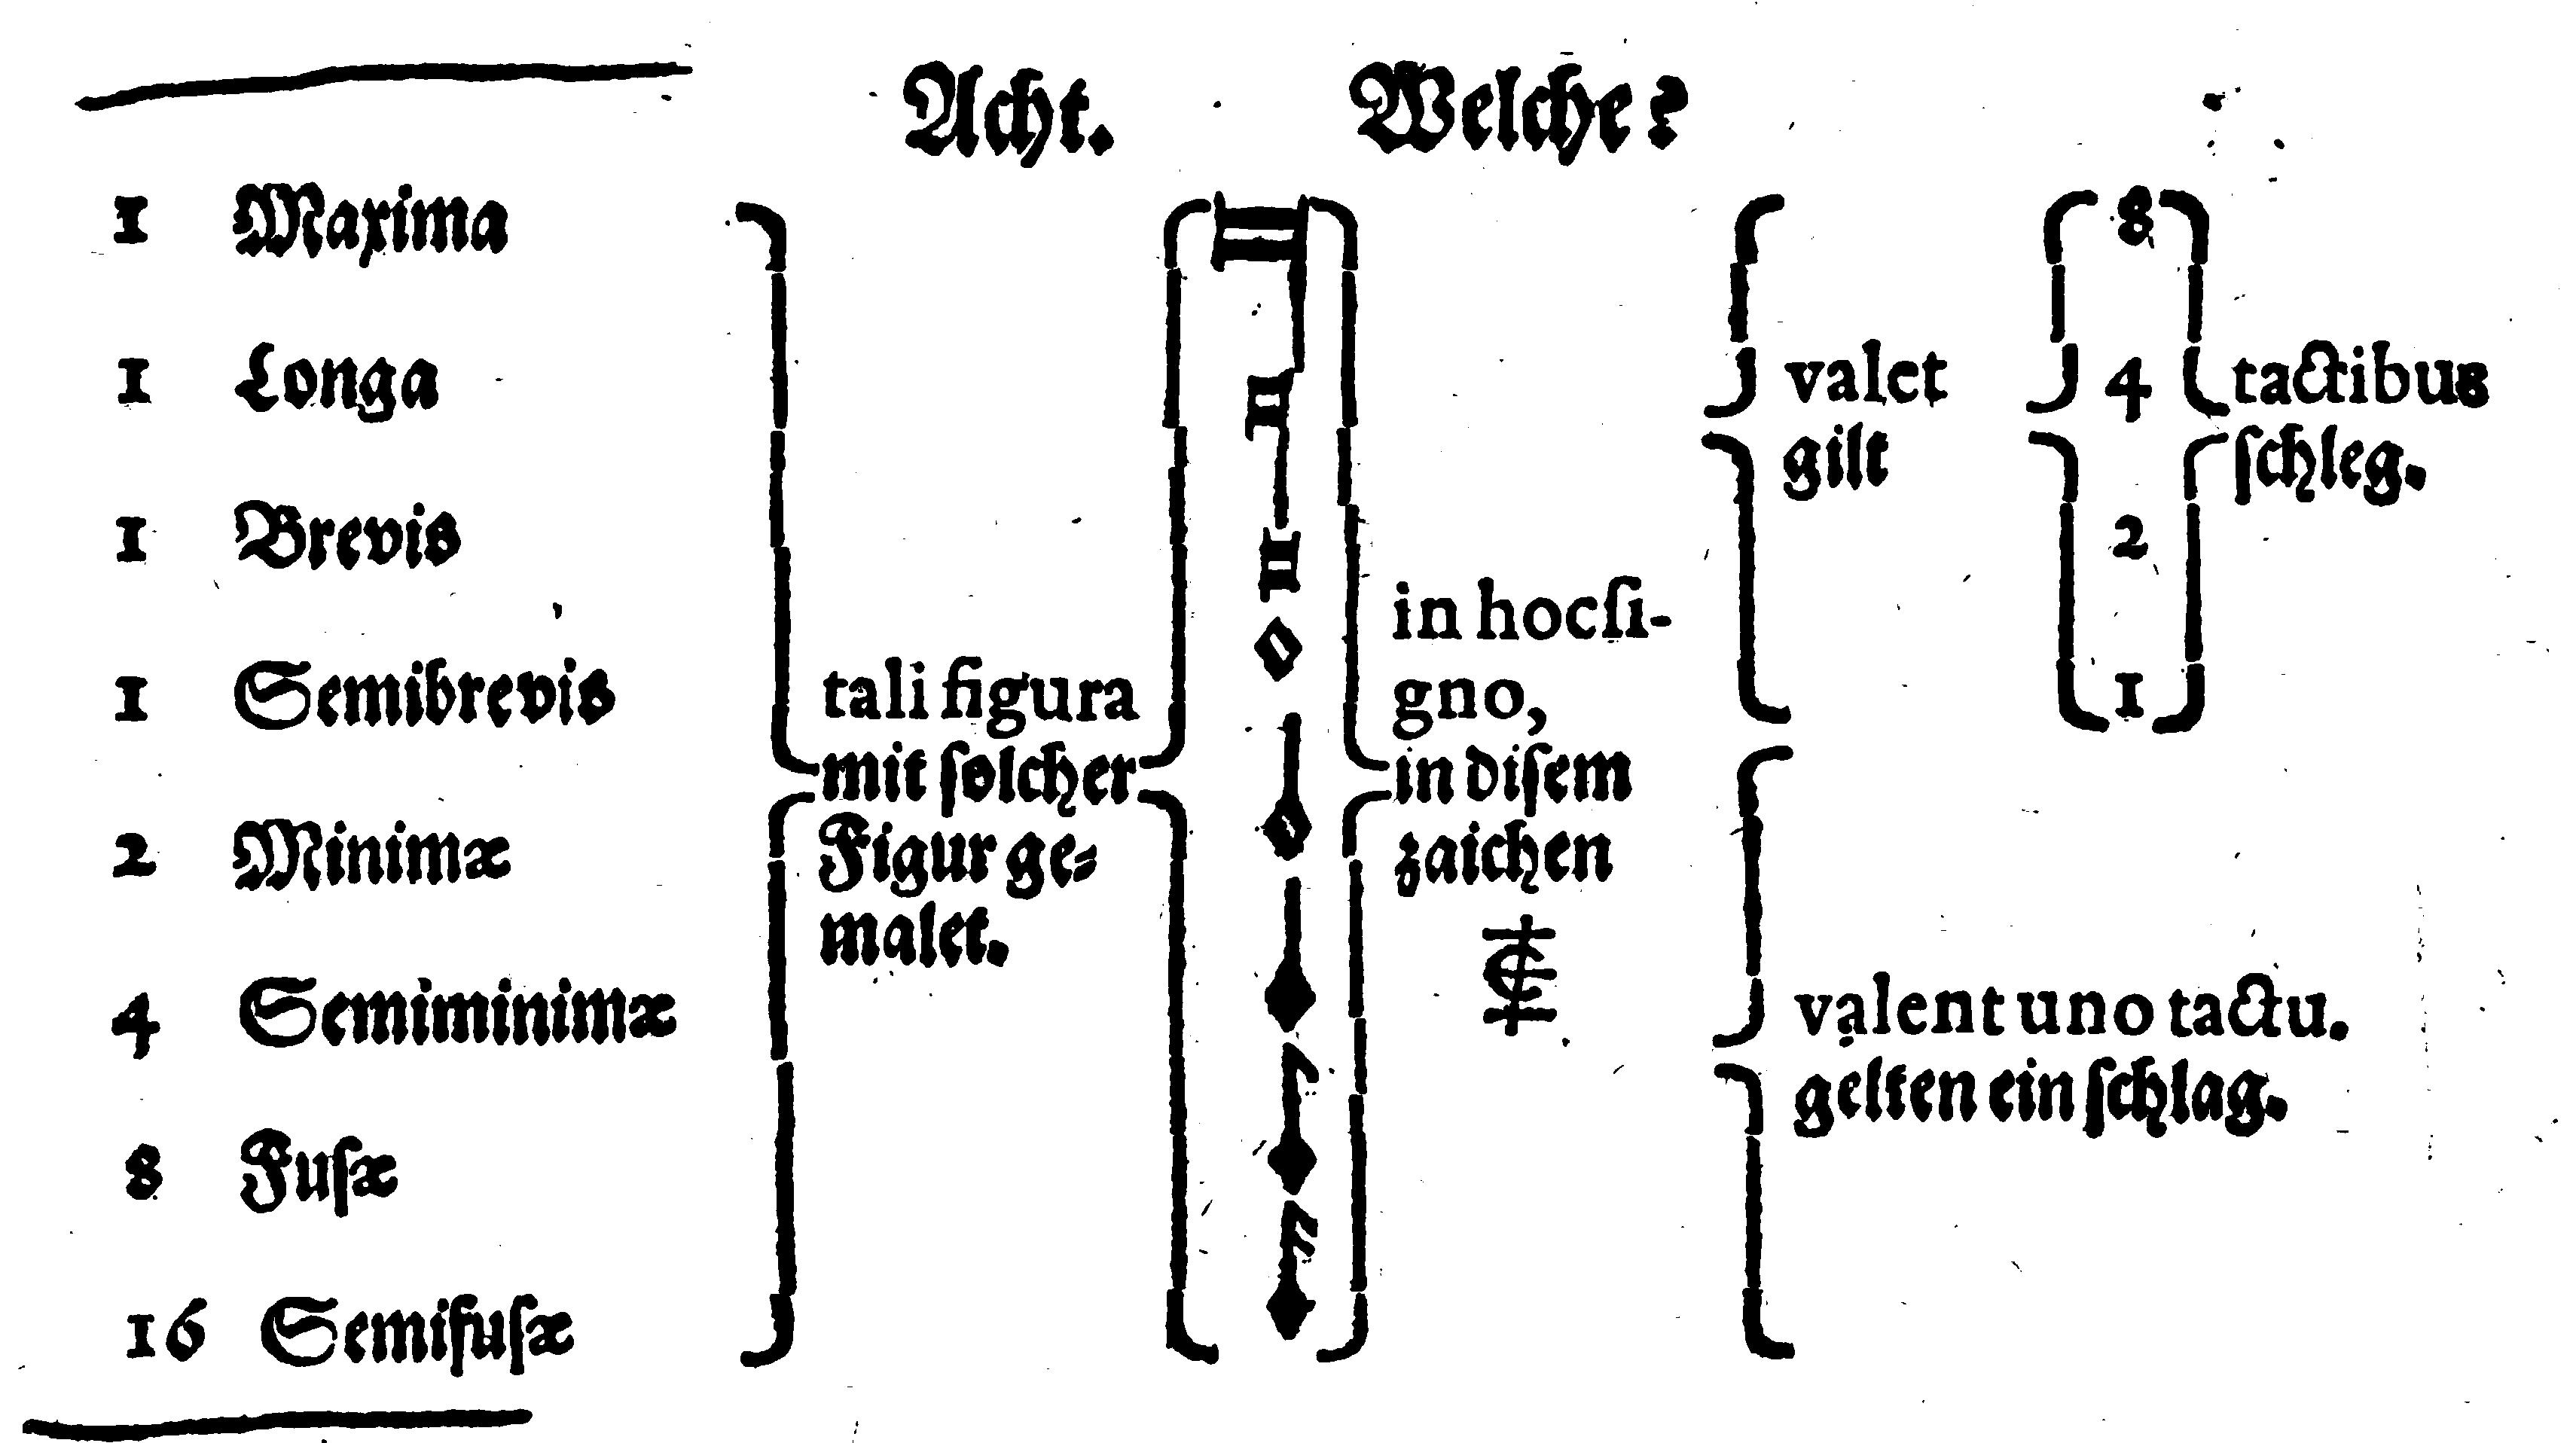 Acht. Welche?
1 Maxima
1 Longa
1 Brevis
1 Semibrevis
2 Minimæ
4 Semiminimæ
8 Fuſæ
16 Semifuſæ
tali figura
mit ſolcher
Figur ge⸗
malet.
in hoc ſi-
gno,
in diſem
zaichen
valet
gilt
8
4
2
1
tactibus
ſchleg.
valent uno tactu.
gelten ein ſchlag.